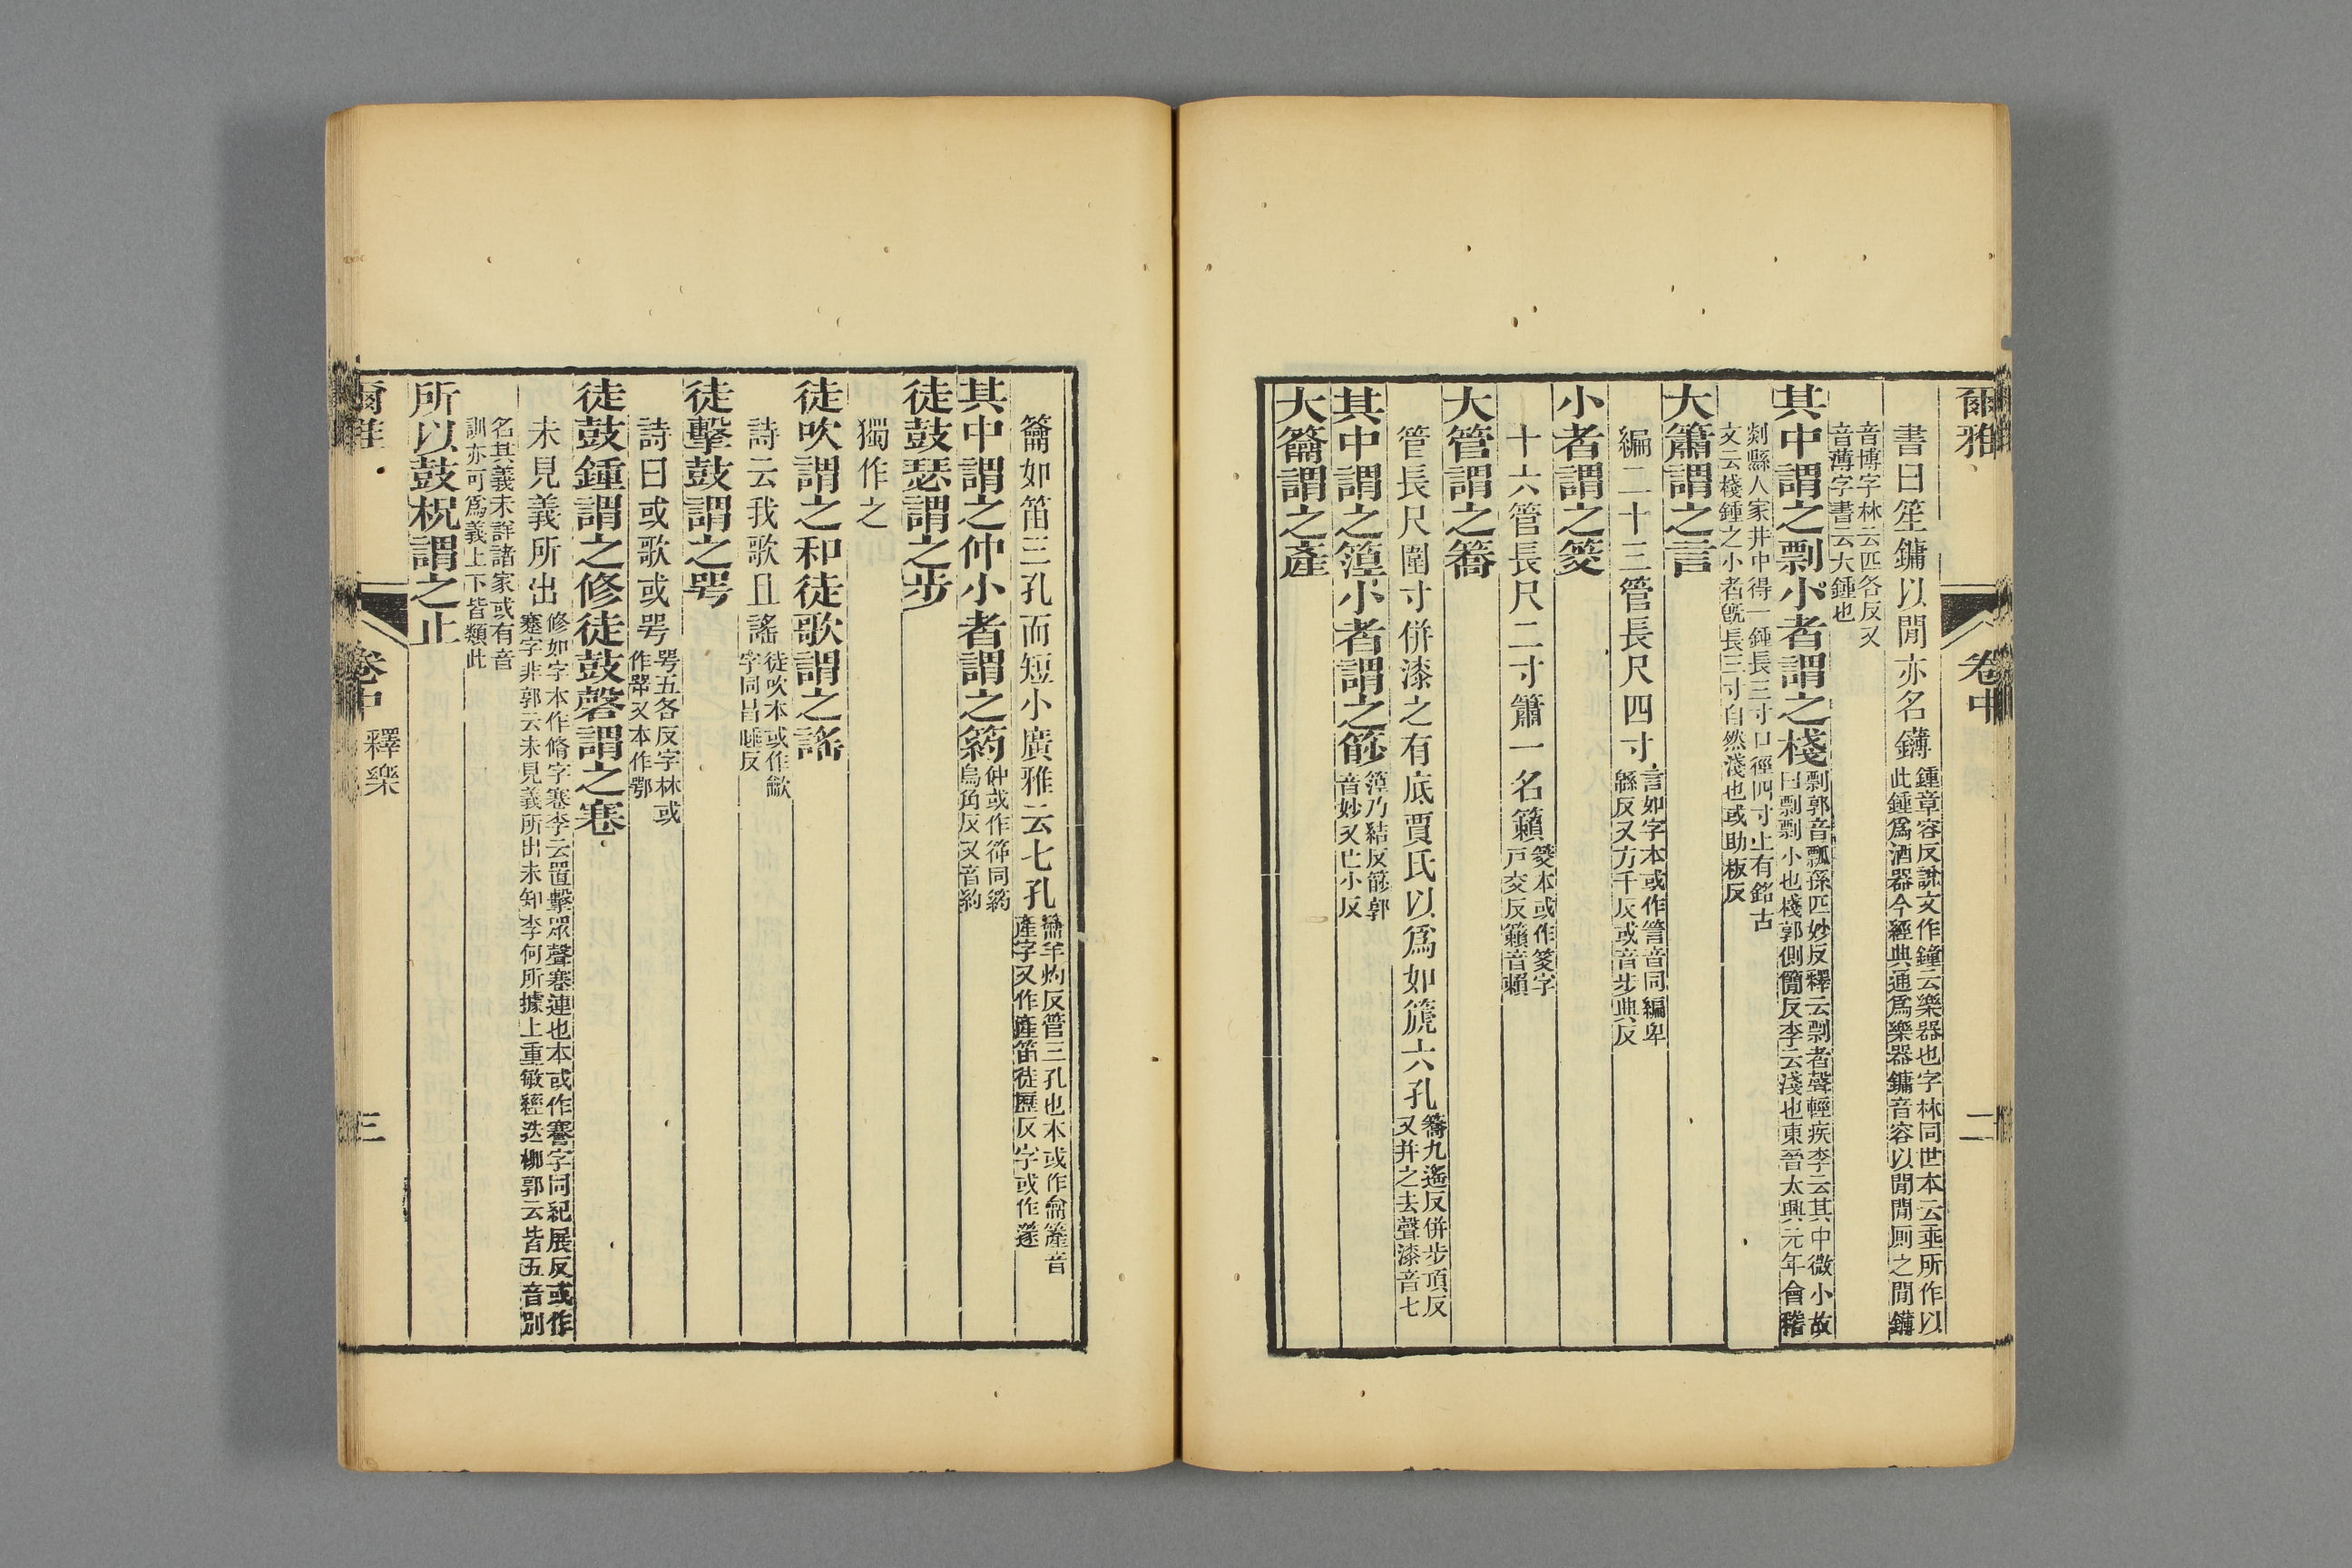 爾雅 卷中 二
書曰笙鏞以閒亦名鏄鍾章容反說文作鐘云樂器也字林同世本云垂所作以此鍾爲酒器今經典通爲樂器鏞音容以閒閒厠之閒鏄
音博字林云匹各反又音薄字書云大鍾也
其中謂之剽小者謂之棧剽郭音瓢孫匹妙反釋云剽者聲輕疾李云其中微小故曰剽剽小也棧郭側簡反李云淺也東晉太興元年會稽
剡縣人家井中得一鍾長三寸口徑四寸上有銘古文云棧鍾之小者旣長三寸自然淺也或助板反
大簫謂之言
編二十三管長尺四寸言如字本或作䇾音同編卑緜反又方千反或音步典反
小者謂之筊
十六管長尺二寸簫一名籟筊本或作筊字戸交反籟音賴
大管謂之簥
管長尺圍寸併漆之有底賈氏以爲如篪六孔簥九遙反併步頂反又并之去聲漆音七
其中謂之篞小者謂之篎篞乃結反篎郭音妙又亡小反
大籥謂之產
籥如笛三孔而短小廣雅云七孔籥羊灼反管三孔也本或作龠簅音產字又作產笛徒歷反字或作篴
其中謂之仲小者謂之箹仲或作筗同箹烏角反又音約
徒鼓瑟謂之步
獨作之
徒吹謂之和徒歌謂之謠
詩云我歌且謠徒吹本或作龡字同昌睡反
徒擊鼓謂之咢
詩曰或歌或咢咢五各反字林或作㖾又本作鄂
徒鼓鍾謂之修徒鼓磬謂之寋
未見義所出修如字本作脩字寋李云置擊眾聲寋連也本或作謇字同紀展反或作蹇字非郭云未見義所出未知李何所據上重敏經迭柳郭云皆五音別
名其義未詳諸家或有音訓亦可爲義上下皆類此
所以鼓柷謂之止
爾雅 卷中 釋樂 三